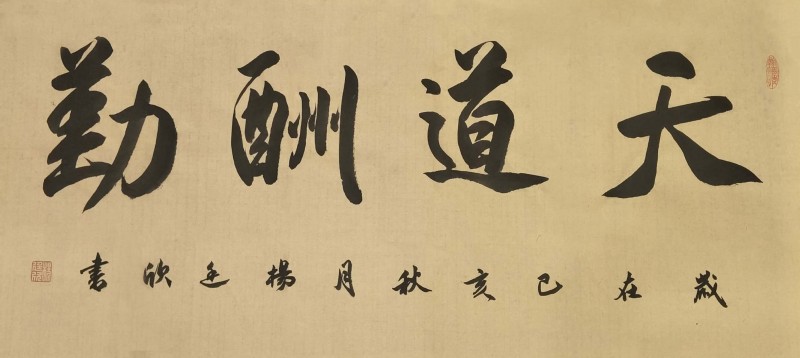 天道酬勤
歲在己亥秋月楊廷欣書